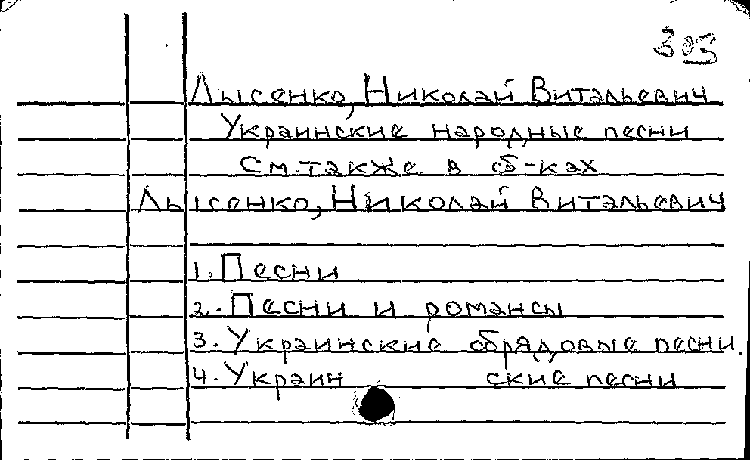 303
Лысенко, Николай Витальевич
Украинские народные песни
См. также в сб-ках
Лысенко, Николай Витальевич
1. Песни
2. Песни и романсы
3. Украинские обрядовые песни.
4. Украин ские песни